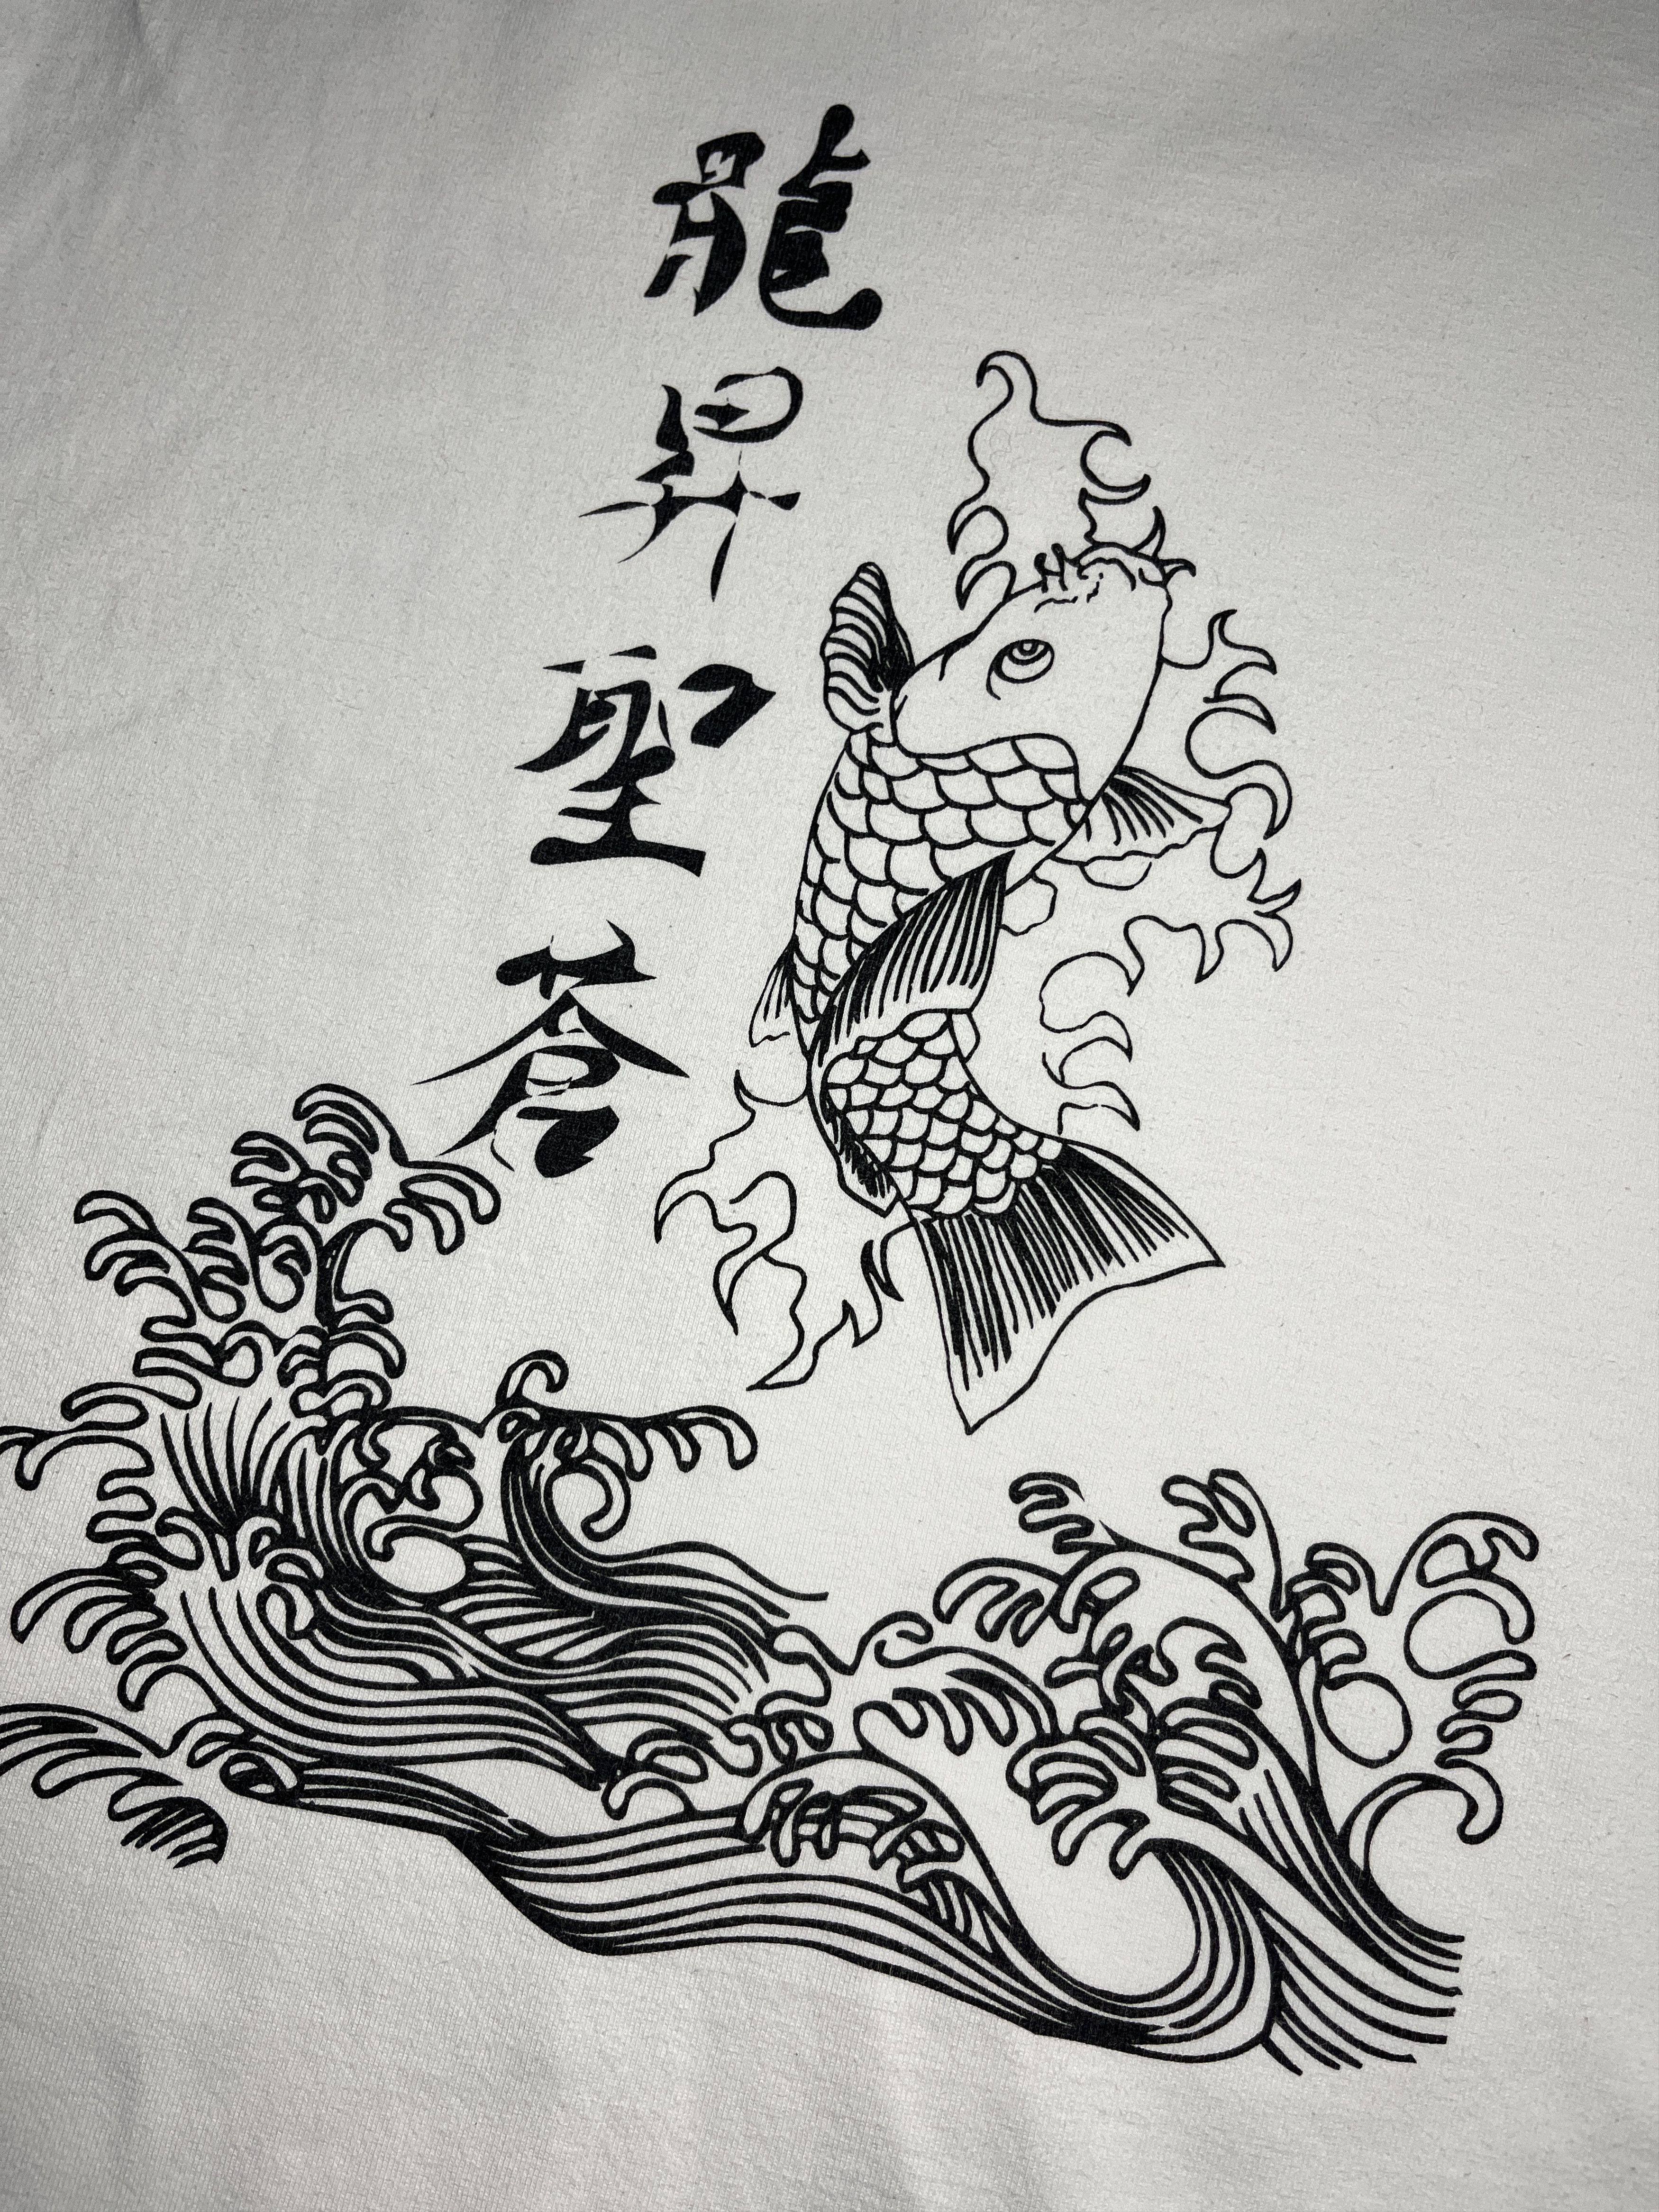 龍昇聖蒼